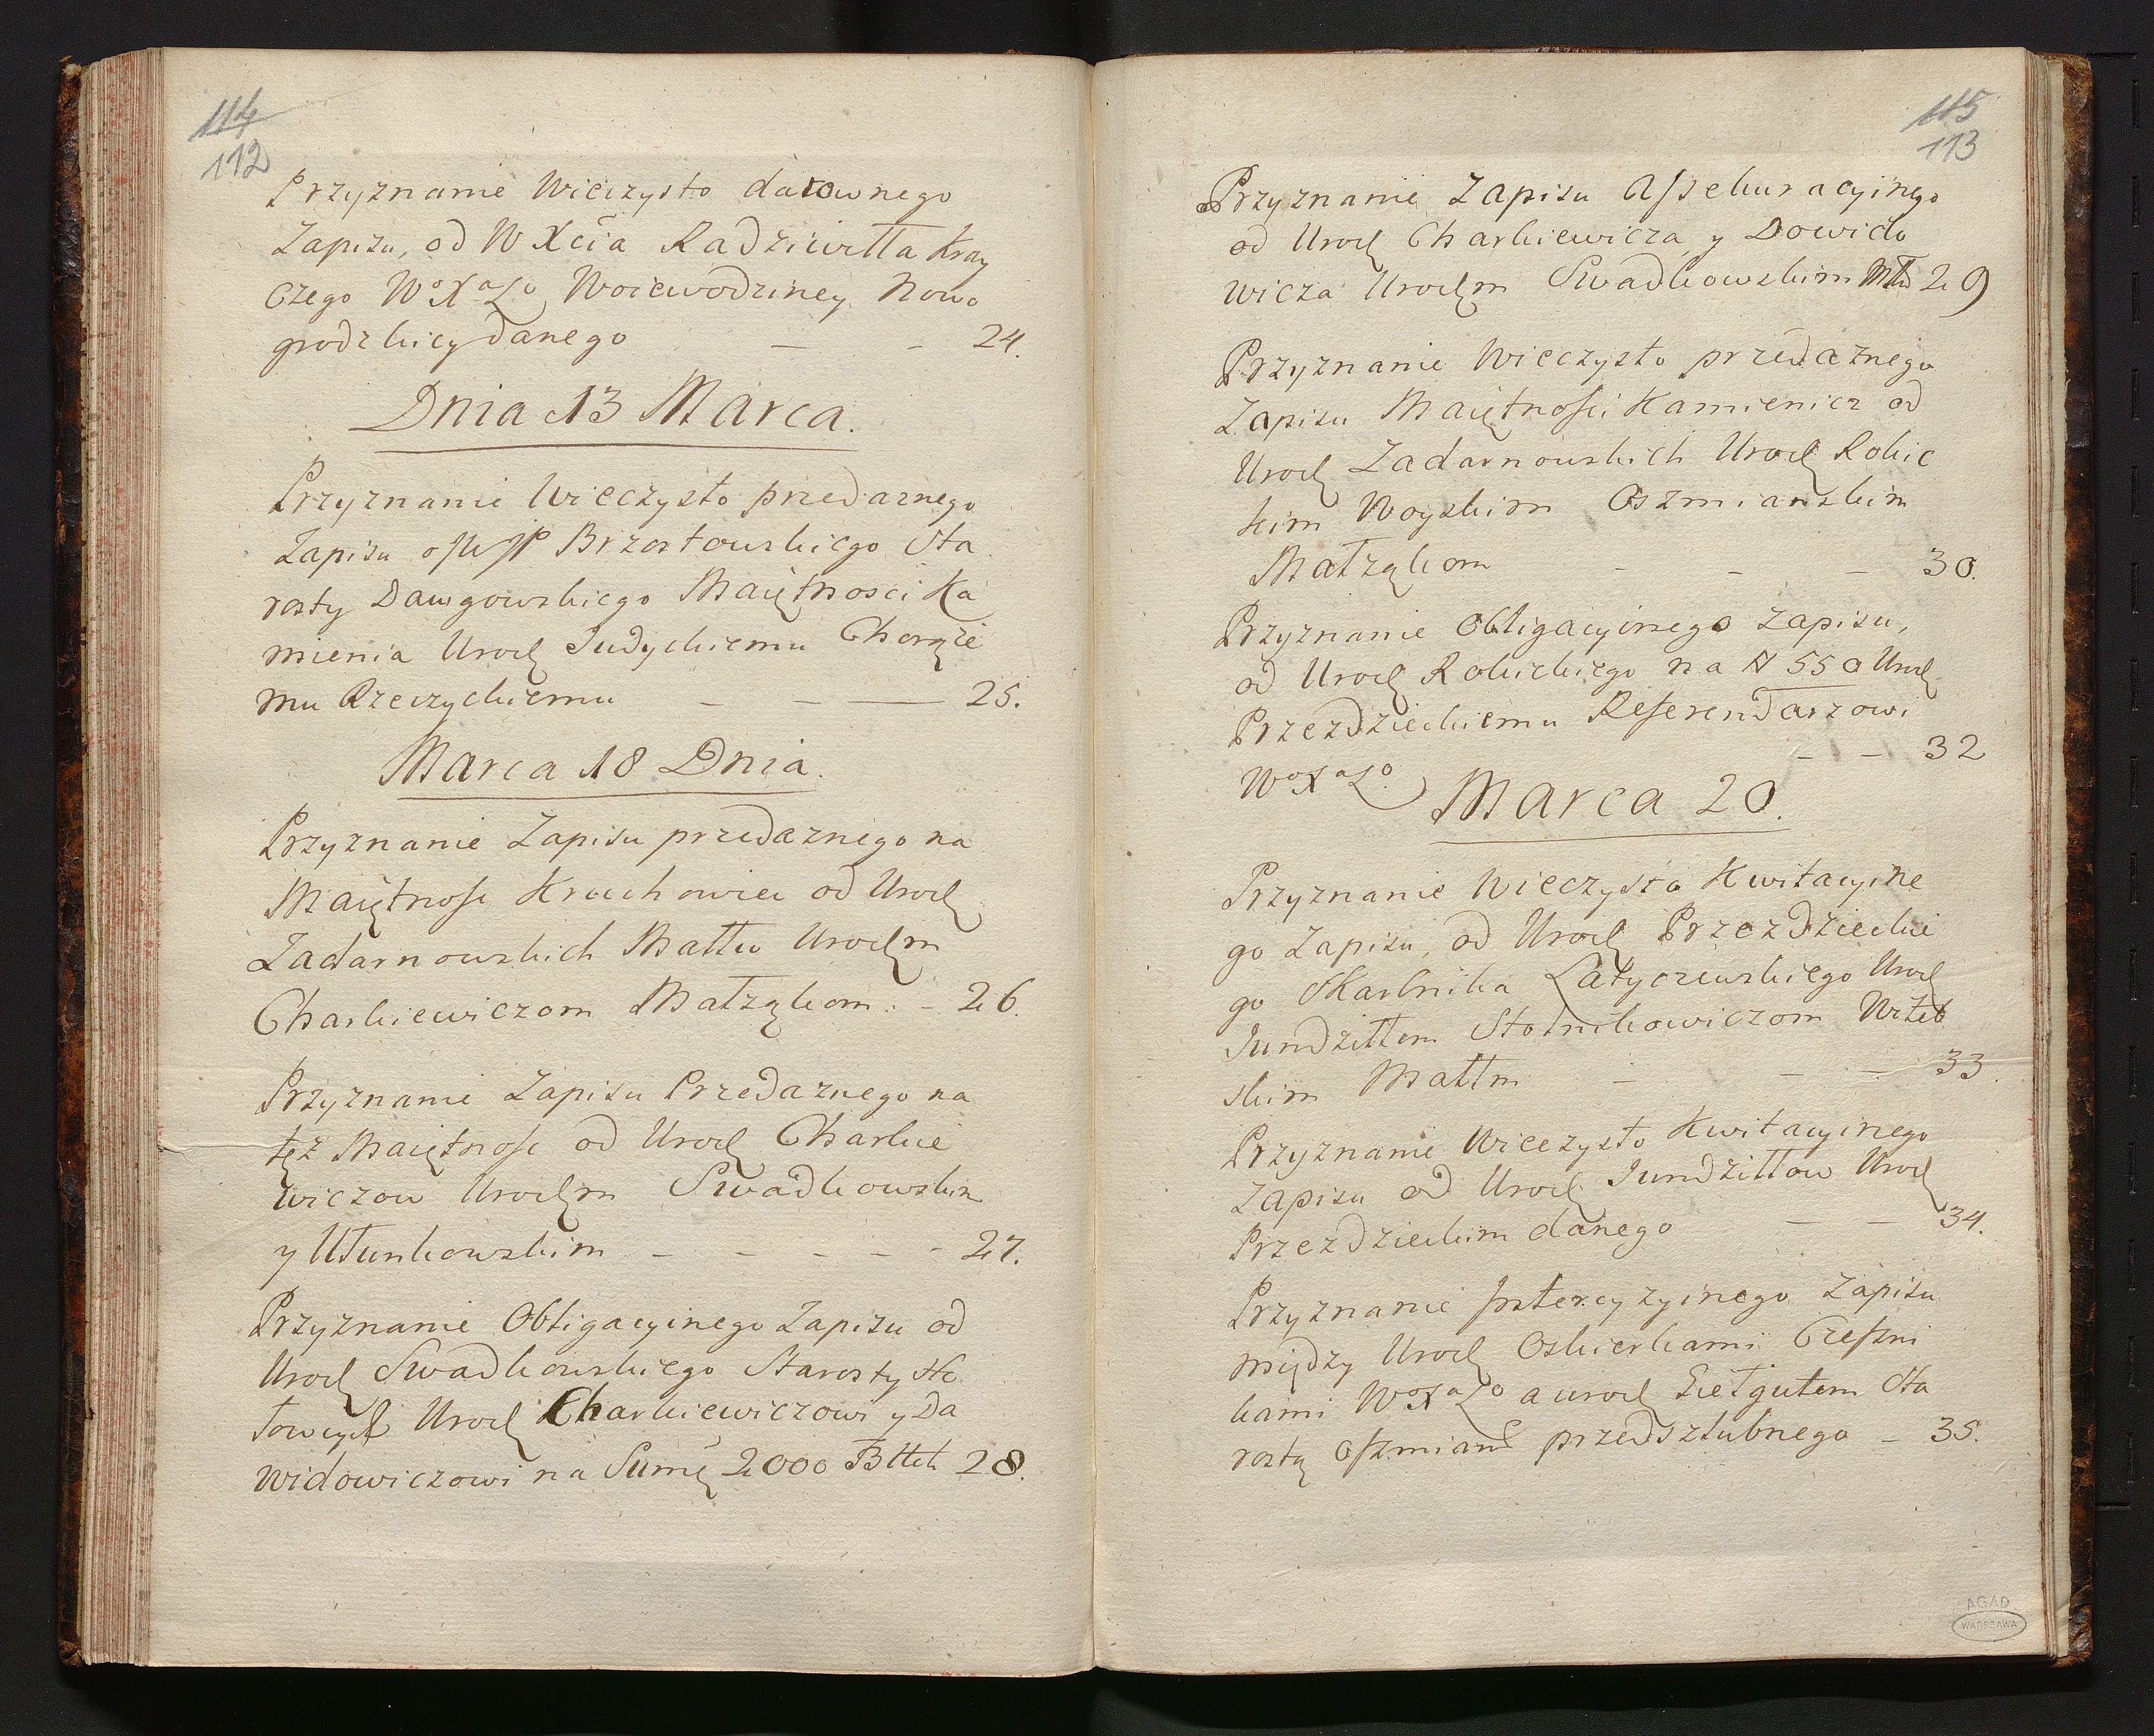 114
112
Przyznanie Wieczysto darownego
Zapisu, od W Xcia Radziwiłła Kray
czego WoXaLo Woiewodziney Nowo
grodzkiey danego — - 24.
Dnia 13 Marca.
Przyznanie Wieczysto przedaznego
Zapisu Brzostowskiego Sta
rosty Dawgowskiego Maiętnosci Ka
mienia Urodz Judyckiemu Chorąże
mu Rzeczyckiemu — — — 25.
Marca 18 Dnia.
Przyznanie Zapisu przedaznego na
Maiętnosc Kruchowicz od Urodz
Zadarnowskich Małłw Urodzm
Charkiewiczom Małżąkom. - 26.
Przyznanie Zapisu Przedaznego na
tęż Maiętnosc od Urodz Charkie
wiczow Urodzm Swadkowskim
y Utunkowskim — — — — — - 27.
Przyznanie Obligacyinego Zapisu od
Urodz Swadkowskiego Starosty Ste
Urodz Charkiewiczowi y Da
widowiczowi na Sumę 2000 Bttch 28.
115
113
Przyznanie Zapisu Assekuracyinego
od Urodz Charkiewicza y Dowido
wicza Urodzm Swadkowskim Młł 29
Przyznanie Wieczysto przedażnego
Zapisu Maiętnosci Kamienicz od
Urodz Zadarnowskich Urodz Robic
kim Woyskim Oszmianskim
Małżąkom - — — 30.
Przyznanie Obligacyinego zapisu,
od Urodz Robickiego na # 550 Urodz
Przezdzieckiemu Referendarzowi
WoXaLo. — — 32
Marca 20.
Przyznanie Wieczysto Kwitacyine
go Zapisu, od Urodz Przezdzieckie
go Skarbnika Latyczewskiego Urodz
Jundziłłom Stolnikowiczom Wileb
skim Małłm — — — 33.
Przyznanie Wieczysto Kwitacyinego
Zapisu od Urodz Jundziłłow Urodz
Przezdzieckim danego — — 34.
Przyznanie Intercyzyinego Zapisu
między Urodz Oskierkami Czeszni
kami WoXaLo a urodz Giełgutem Sta
rostą Oszmian przedszlubnego — 35.
AGAD
WARSZAWA